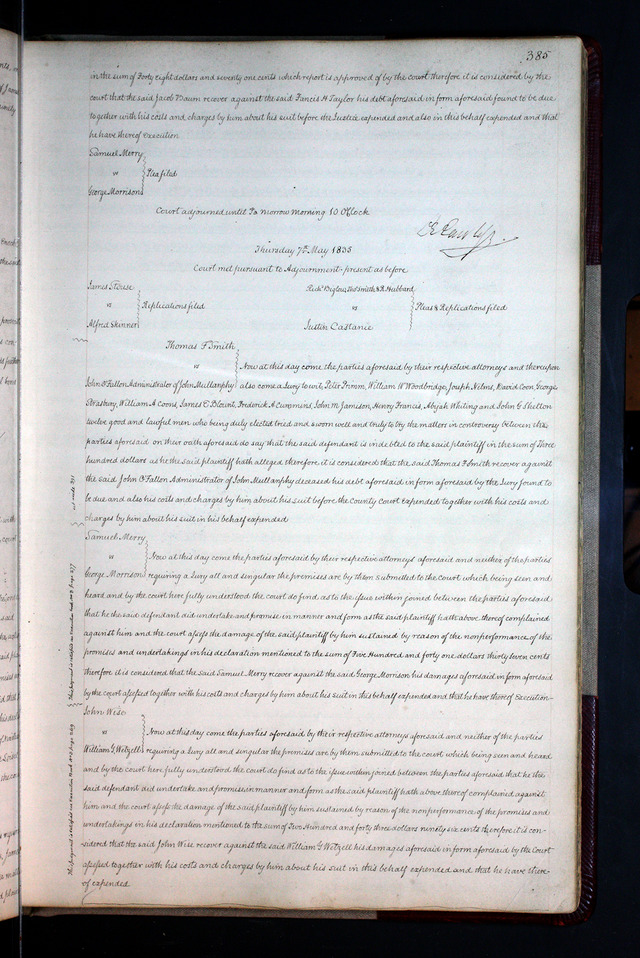 385
in the sum of Forty eight dollars and seventy one cents which report is approved of by the court therefore it is considered by the
court that the said Jacob Baum recover against the said Fancis H Taylor his debt aforesaid in form aforesaid found to be due
together with his costs and charges by him about his suit before the Justice expended and also in this behalf expended and that
he have thereof execution
Samuel Merry
vs Plea filed
George Morrison
Court adjourned until To morrow morning 10 O'Clock
Thursday 7th May 1835
Court met pursuant to Adjournment present as before
James
vs Replications filed
Alfred Skinner
Rich'd Biglow, Tho's Smith & R. Hubbard
vs Pleas & Replications filed
Justin Castanie
Thomas F Smith
vs Now at this day come the parties aforesaid by their respective attorneys and thereupon
John O'Fallon Administrator of John Mullanphy also come a Jury to wit, Peter Primm, William W Woodbridge, Joseph Nelms, David Coon, George
Strasbury, William A Coons, James C Blount, Frederick A Cummins, John M Jamison, Henry Francis, Abijah Whiting and John G Shelton
twelve good and lawful men who being duly elected tried and sworn well and truly to try the matters in controversy between the
parties aforesaid on their oath aforesaid do say that the said defendant is indebted to the said plaintiff in the sum of Three
hundred dollars as he the said plaintiff hath alleged, therefore it is considered that the said Thomas F Smith recover against
the said John O'Fallon Administrator of John Mullanphy deceased his debt aforesaid in form aforesaid by the Jury found to
be due and also his costs and charges by him about his suit before the County Court expended together with his costs and
charges by him about his suit in this behalf expended
Samuel Merry
vs Now at this day come the parties aforesaid by their respective attorneys aforesaid and neither of the parties
George Morrison requiring a Jury all and singular the premises are by them submitted to the court which being seen and
heard and by the court here fully understood the court do find as to the issue within joined between the parties aforesaid
that he the said defendant did undertake and promise in manner and form as the said plaintiff hath above thereof complained
against him and the court assess the damage of the said plaintiff by him sustained by reason of the nonperformance of the
promises and undertakings in his declaration mentioned to the sum of Five Hundred and forty one dollars thirty seven cents
therefore it is considered that the said Samuel Merry recover against the said George Morrison his damages aforesaid in form aforesaid
by the court assessed together with his costs and charges by him about his suit in this behalf expended and that he have thereof Execution
John Wise
vs Now at this day come the parties aforesaid by their respective attorneys aforesaid and neither of the parties
William G Wetzell requiring a Jury all and singular the premises are by them submitted to the court which being seen and heard
and by the court here fully understood the court do find as to the issue within joined between the parties aforesaid that he the
said defendant did undertake and promise in manner and form as the said plaintiff hath above thereof complained against
him and the court assess the damage of the said plaintiff by him sustained by reason of the nonperformance of the promises and
undertakings in his declaration mentioned to the sum of Two Hundred and forty three dollars ninety six cents therefore it is con-
sidered that the said John Wise recover against the said William G Wetzell his damages aforesaid in form aforesaid by the Court
assessed together with his costs and charges by him about his suit in this behalf expended and that he have there
of expended